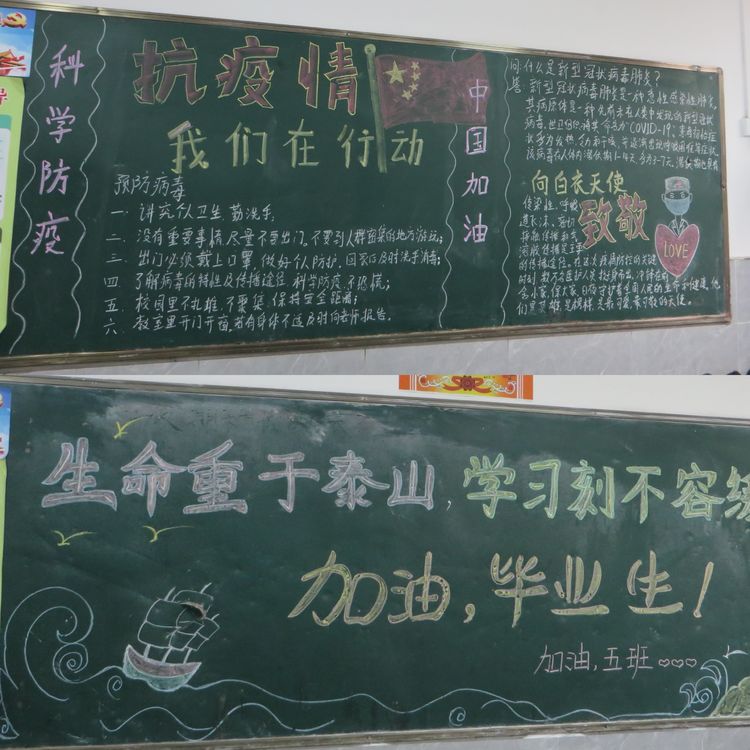 科学防疫
抗疫情
我们在行动
预防病毒
一、讲究个人卫生 勤洗手;
二、没有重要事情尽量不要出门,不要到人群密集的地方游玩;
三、出门必须戴上口罩,做好个人防护,回家后及时洗手消毒;
四、了解病毒的特性及传播途径,科学防疫,不恐慌;
五、校园里不扎堆,不聚集,保持安全距离;
六、教室里开门开窗,若有身体不适及时向老师报告。
中国加油
问:什么是新型冠状病毒肺炎?
答:新型冠状病毒肺炎是一种急性感染性肺炎,
其病原体是一种先前未在人类中发现的新型冠状
病毒,世卫组织将其命名为COVID-19,患者初始症
状多为发热、乏力和干咳,并逐渐出现呼吸困难等症状
该病毒在人体内潜伏期1-14天,多为3-7天,潜伏期也具有
传染性,呼吸
道飞沫、
向白衣天使
致敬
LOVE
的传播途径。
生命重于泰山,学习刻不容缓
加油,毕业生!
加油,五班♡♡♡